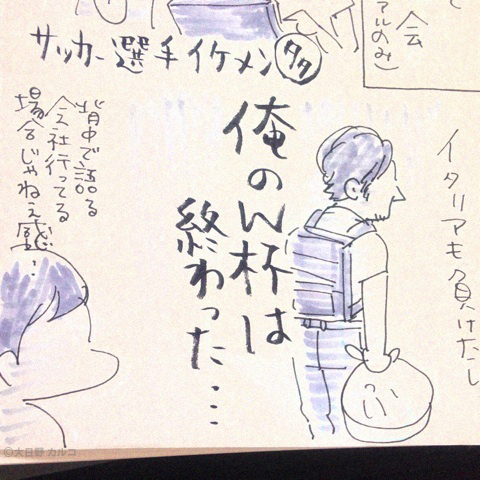 会
アルのみ)
サッカー選手イケメン
タタ
イタリアも負けたし
俺のW杯は
終わった…
背中で語る
会社行ってる
場合じゃねえ感…
ふ
©大日野 カルコ